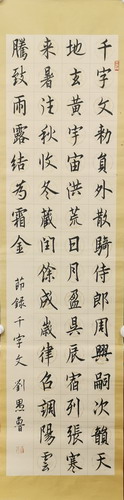 千字文勅員外散騎侍郎周興嗣次韻天
地玄黃宇宙洪荒日月盈昃辰宿列張寒
来暑往秋收冬藏閏餘成歲律召調陽雲
騰致雨露結為霜金
節錄千字文劉愚魯